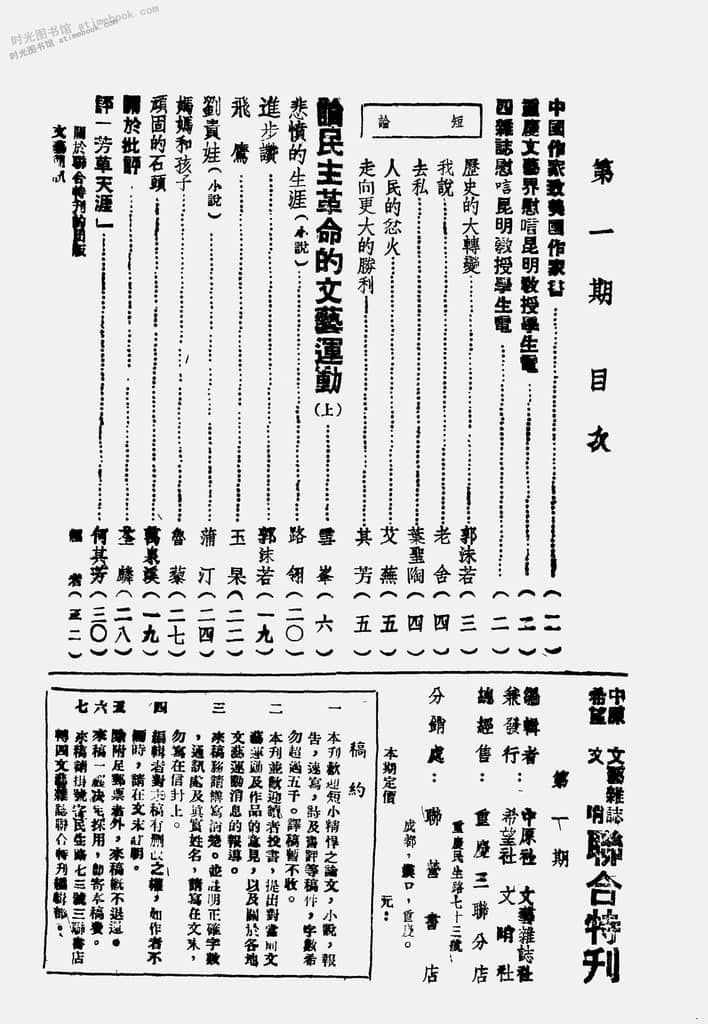 时光图书馆 etimebook.com
时光图书馆 etimebook.com
第一期 目次
中國作家致美國作家書 (一)
重慶文藝界慰唁昆明教授學生電 (二)
四雜誌慰唁昆明敎授學生電 (二)
短論
歷史的大轉變 郭沫若 (三)
我說 老舍 (四)
去私 葉聖陶 (四)
人民的忿火 艾蕪 (五)
走向更大的勝利 其芳 (五)
論民主革命的文藝運動(上) 雪峯 (六)
悲憤的生涯(小說) 路翎 (二〇)
進步讚 郭沫若 (一九)
飛鷹 玉杲 (二二)
劉貴娃(小說) 蒲汀 (二四)
媽媽和孩子 魯藜 (二七)
頑固的石頭 (一九)
關於批評 荃麟 (二八)
評「芳草天涯」 何其芳 (三〇)
關於聯合特刊的出版
文藝簡訊
編者 (三二)
中原 文藝雜誌
希望 文哨
聯合特刊
第一期
編輯者: 中原社 文藝雜誌社
兼發行: 希望社 文哨社
總經售: 重慶三聯分店
重慶民生路七十三號
分銷處: 聯營書店
成都,漢口,重慶。
本期定價 元:
稿約
一 本刊歡迎短小精悍之論文,小說,報
告,速寫,詩及書評等稿件,字數希
勿超過五千。譯稿暫不收。
二 本刊並歡迎讀者投書,提出對當前文
藝運動及作品的意見,以及關於各地
文藝運動消息的報導。
三 來稿務請繕寫淸楚。並註明正確字數
,通訊處及眞實姓名,請寫在文末,
勿寫在信封上。
四 編輯者對來稿有刪改之權,如作者不
願時,請在文末訂明。
五 除附足郵票者外,來稿槪不退還。
六 來稿一經決定採用,卽寄奉稿費。
七 來稿請掛號寄民生路七三號三聯書店
轉四文藝雜誌聯合特刊編輯部。